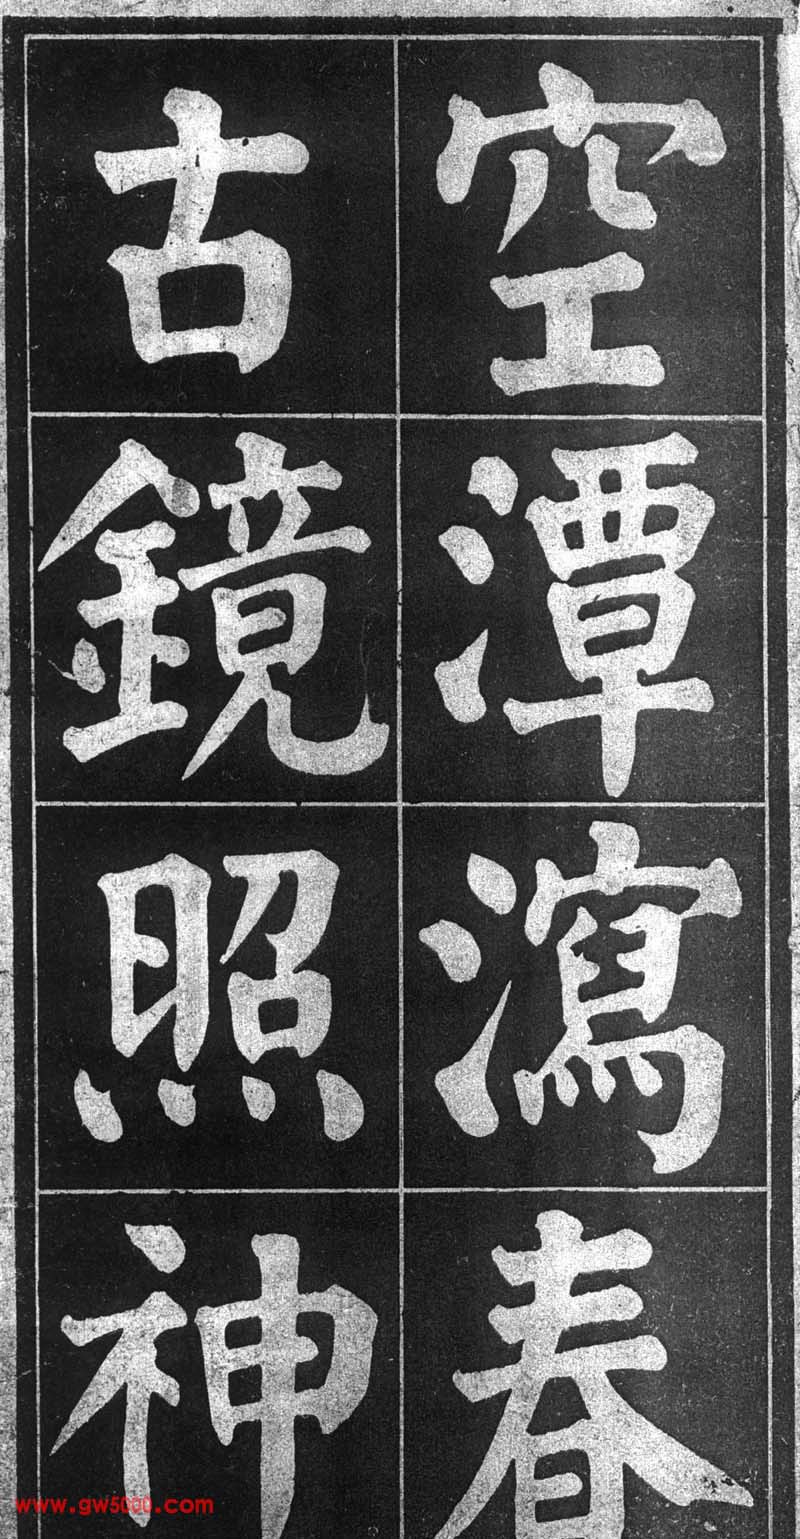 空潭瀉春
古鏡照神
www.gw5000.com